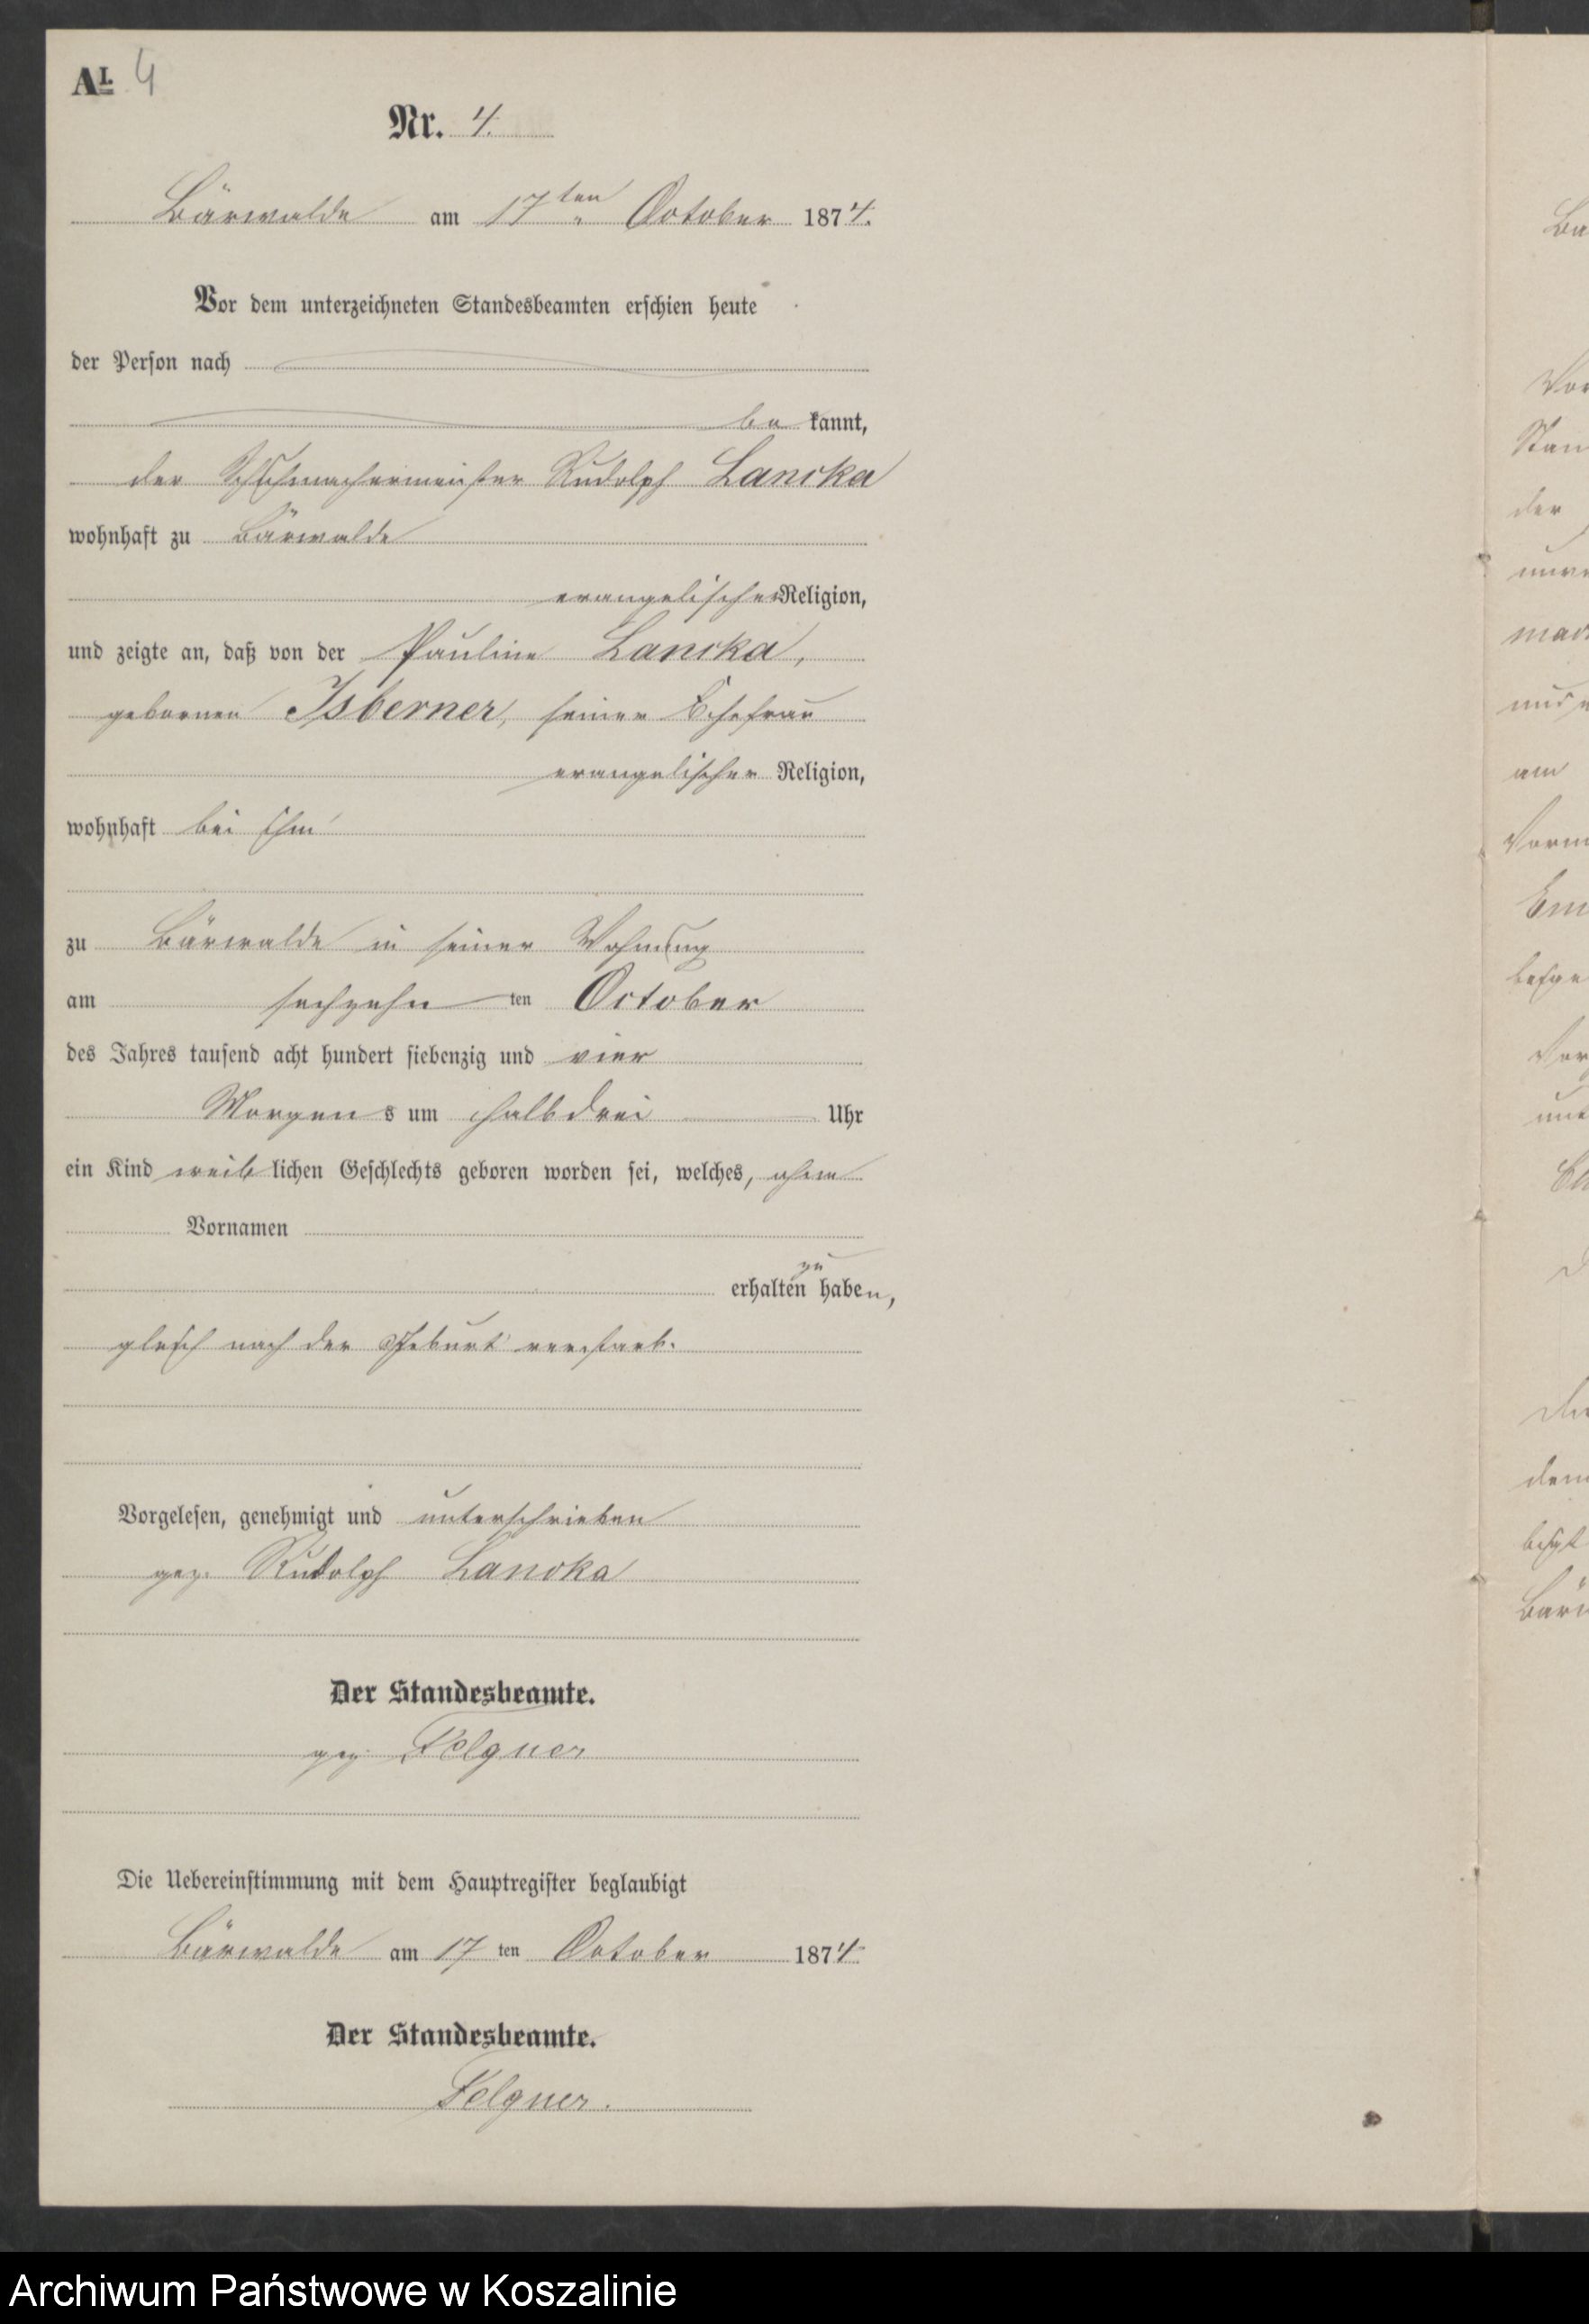 A I. 4
Nr. 4.
Bärwalde am 17ten October 1874.
Vor dem unterzeichneten Standesbeamten erschien heute
der Person nach
be kannt,
der Schuhmachermeister Rudolph Lancka
wohnhaft zu Bärwalde
evangelischer Religion,
und zeigte an, daß von der Pauline Lancka,
gebornen Isberner, seiner Ehefrau
evangelischer Religion,
wohnhaft bei ihm
zu Bärwalde in seiner Wohnung
am sechzehn ten October
des Jahres tausend acht hundert siebenzig und vier
Morgens um halb drei Uhr
ein Kind weiblichen Geschlechts geboren worden sei, welches, ohne
Vornamen
erhalten zu haben,
gleich nach der Geburt verstarb.
Vorgelesen, genehmigt und unterschrieben
gez. Rudolph Lancka
Der Standesbeamte.
gez. Felgner
Die Uebereinstimmung mit dem Hauptregister beglaubigt
Bärwalde am 17 ten October 1874.
Der Standesbeamte.
Felgner.
Archiwum Państwowe w Koszalinie